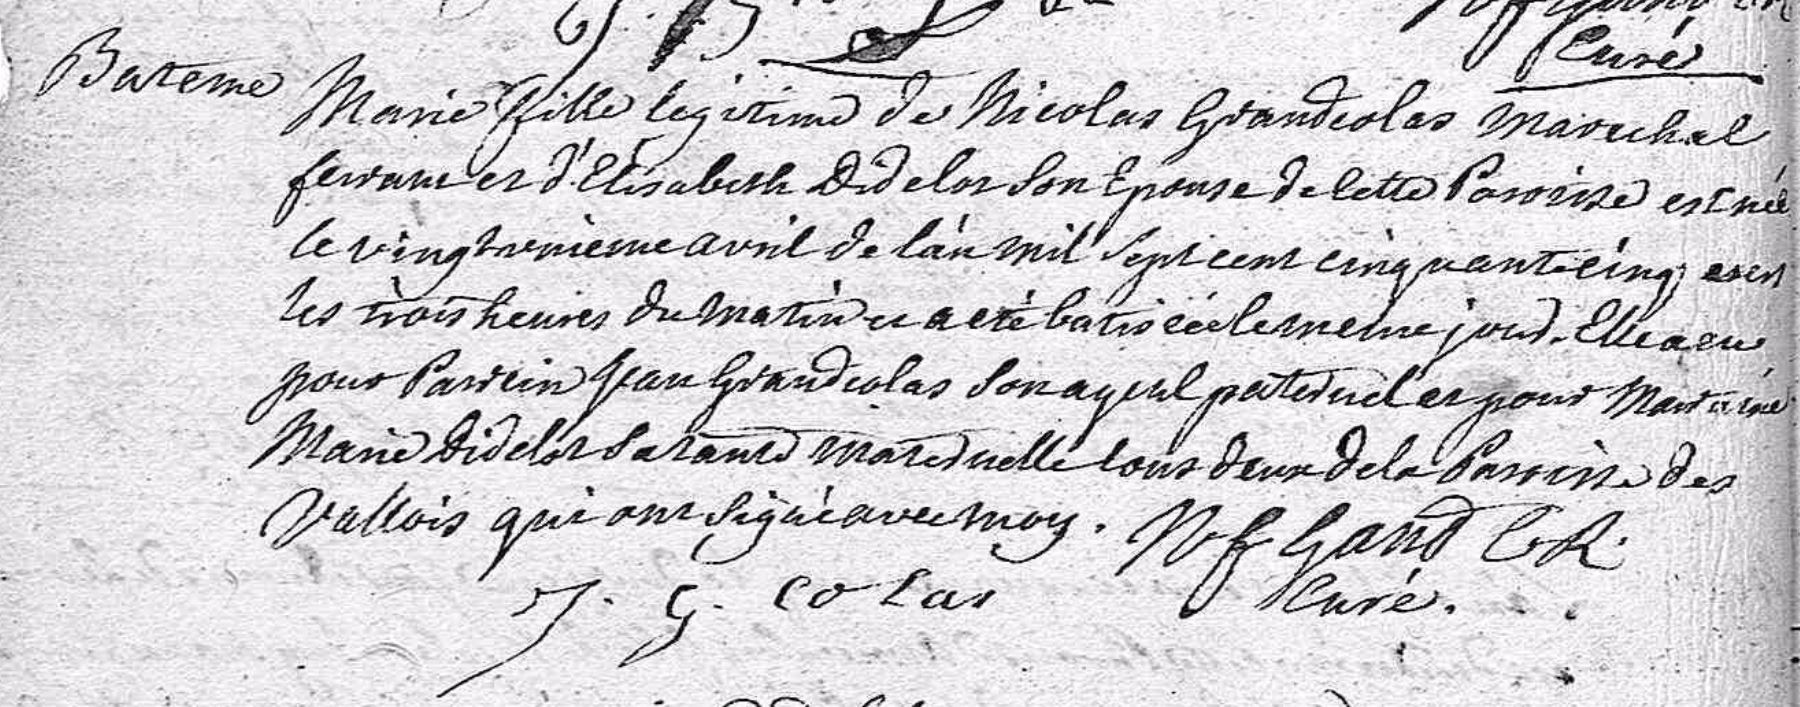 Curé
Bateme
Marie fille legitime de Nicolas Grandcolas Marechal
ferrant et d'Elisabeth Didelot Son Epouse de cette Paroisse est née
le vingt unieme avril de l'an mil Sept cent cinquante cinq
les trois heures du matin et a eté batisée le meme jour. Elle a eu
pour Parrein Jean Grandcolas Son ayeul paternel et pour Marreine
Marie Didelot Sa tante maternelle tous deux de la Paroisse des
Vallois qui ont Signé avec moy. Gand C R.
J. G. Colas Curé.